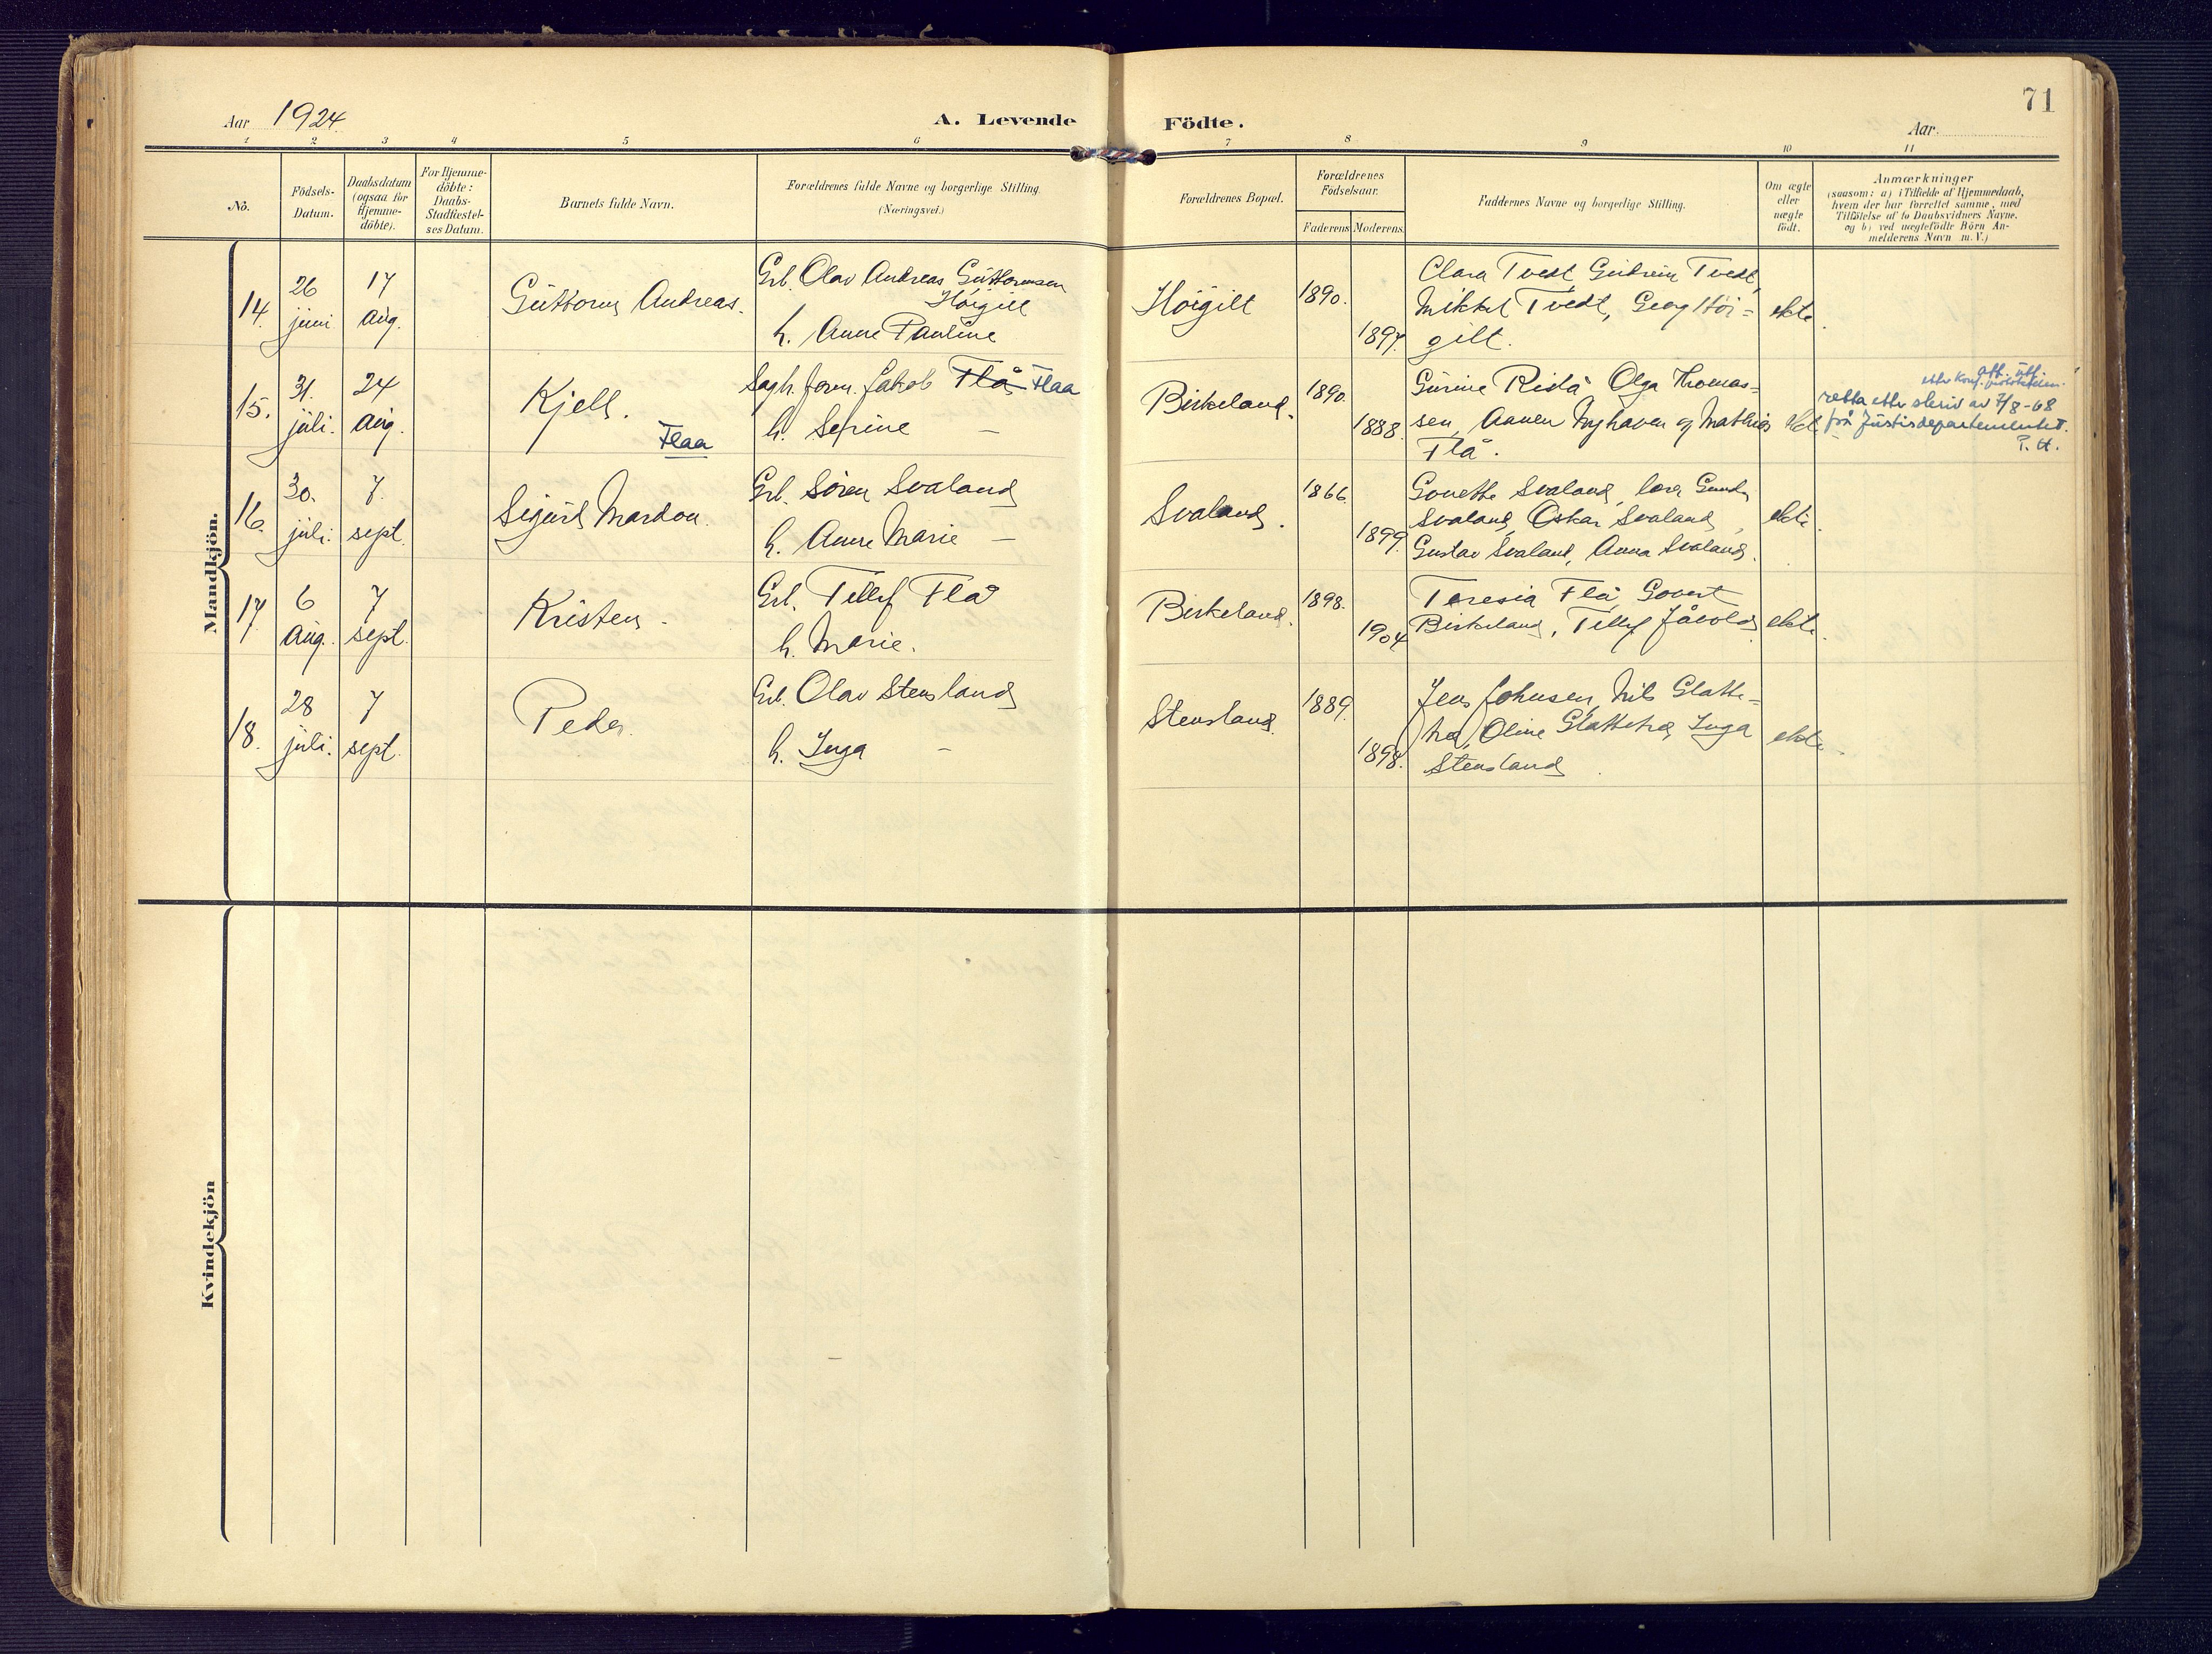 71
Aar 1924.
A. Levende Födte.
Aar
1 2 3 4 5 6 7 8 9 10 11
No.
Födsels-
Datum.
Daabsdatum
(ogsaa for
Hjemme-
döbte).
For Hjemme-
döbte:
Daabs-
Stadfæstel-
ses Datum.
Barnets fulde Navn.
Forældrenes fulde Navne og borgerlige Stilling.
(Næringsvei.)
Forældrenes Bopæl.
Forældrenes
Födselsaar.
Faderens
Moderens
Faddernes Navne og borgerlige Stilling.
Om ægte
eller
uægte
födt.
Anmærkninger
(saasom: a) i Tilfælde af Hjemmedaab,
hvem der har forrettet samme, med
Tilföielse af to Daabsvidners Navne.
og b) ved uægtefödte Börn An-
melderens Navn m.V.)
Mandkjön.
14.
26
juni.
17
aug.
Guttorm Andreas.
Grb. Olav Andreas Guttormsen
Høigilt
h. Anne Pauline
Høigilt
1890.
1897.
Clara Tvedt, Gudrun Tvedt,
Mikkel Tvedt, Georg Høi=
gilt.
ekte.
15.
31.
juli.
24
aug.
Kjell.
Flaa
Sagh. form. Jakob Flå Flaa
h. Serine —
Birkeland.
1890.
1888.
Gurine Ristå Olga Thomas-
sen, Annen Myhaven og Mathias
Flå.
ekte.
retta etter skriv av 7/8-68
frå Justisdepartementet.
P. H.
16.
30.
juli.
7.
sept.
Sigurd Mardon.
Grb. Søren Svaland
h. Anne Marie —
Svaland.
1866.
1899.
Gonette Svaland, lærer
Svaland, Oskar Svaland,
Gustav Svaland, Anna Svaland.
ekte.
17.
6
aug.
7
sept.
Kristen.
Grb. Tellef Flå
h. Marie.
Birkeland.
1898.
1904
Teresia Flå, Govert
Birkeland, Tellef Jåvold
ekte.
18.
28
juli.
7
sept.
Peder.
Grb. Olav Stensland
h. Inga —
Stensland.
1889.
1898.
Jens Johnsen, Nils Glatte=
tre, Oline Glattetre, Inga
Stensland.
ekte.
Kvindekjön